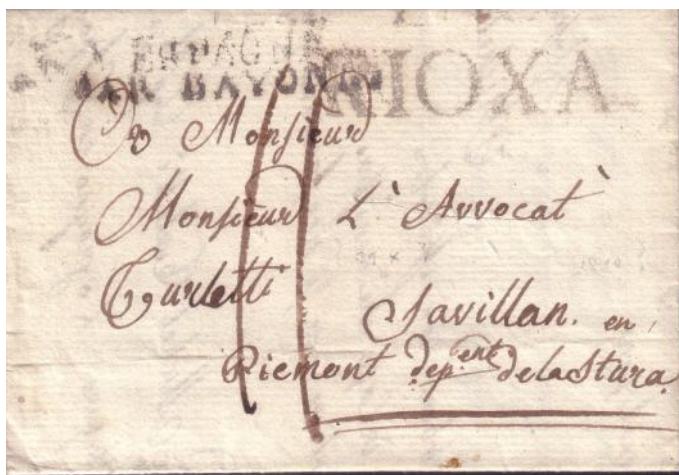 ESPAGNE
PAR BAYONNE
RIOXA
A Monsieur
Monsieur L'Avvocat
Turletti
Savillan. en
Piemont dep.ent de la Stura
11